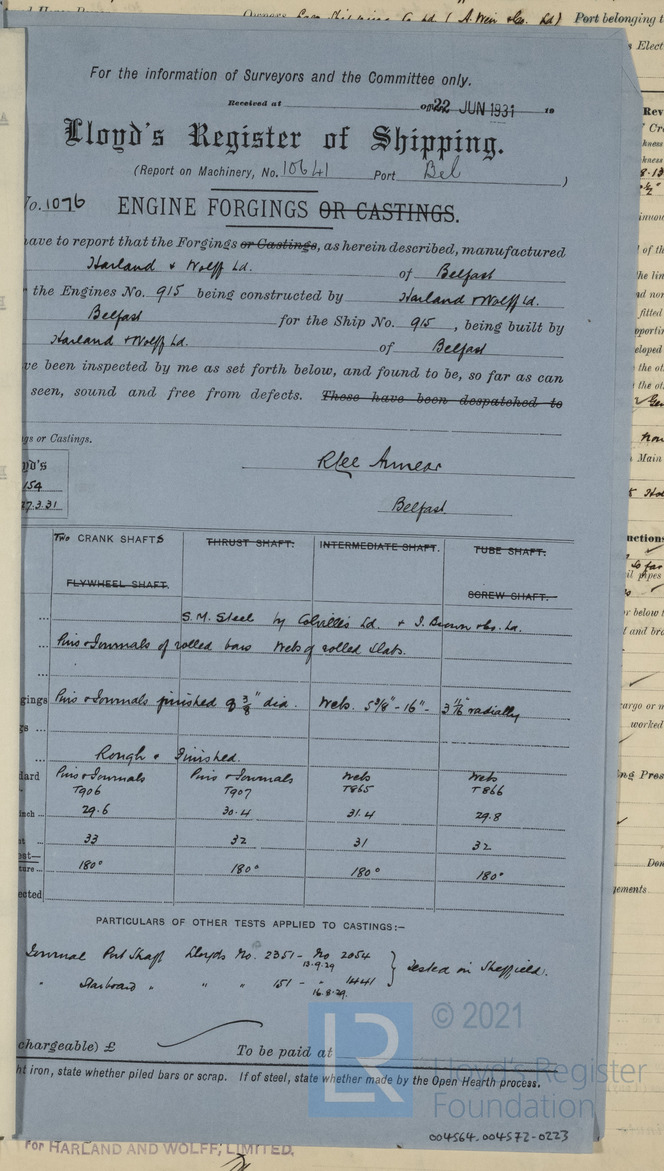 Port belonging t
For the information of Surveyors and the Committee only.
Received at 22 JUN 1931 19
Lloyd's Register of Shipping.
(Report on Machinery, No. 10641 Port Bel )
No. 1076 ENGINE FORGINGS OR CASTINGS.
have to report that the Forgings or Castings, as herein described, manufactured
Harland & Wolff Ld. of Belfast
the Engines No. 915 being constructed by Harland & Wolff Ld.
Belfast for the Ship No. 915, being built by
Harland & Wolff Ld. of Belfast
ve been inspected by me as set forth below, and found to be, so far as can
seen, sound and free from defects. These have been despatched to
gs or Castings.
yd's
154
27.3.31
Belfast
Two CRANK SHAFTS THRUST SHAFT. INTERMEDIATE SHAFT. TUBE SHAFT.
FLYWHEEL SHAFT. SCREW SHAFT.
S.M. Steel by Colvilles Ld. & J. Brown & Co. Ld.
Pins & Journals of rolled bars Webs of rolled slabs.
gings Pins & Journals finished 9 3/8" dia. Webs. 5 3/8" - 16" - 3 11/16 radially
Rough & Finished.
dard Pins & Journals Pins & Journals Webs Webs
T906 T907 T865 T866
inch 29.6 30.4 31.4 29.8
33 32 31 32
ture 180° 180° 180° 180°
ected
PARTICULARS OF OTHER TESTS APPLIED TO CASTINGS:—
Journal Port Shaft Lloyds No. 2351 - No 2054
13.9.29
" Starboard " " " 151 - " 1441 } Tested in Sheffield.
16.8.29.
chargeable) £ To be paid at
ht iron, state whether piled bars or scrap. If of steel, state whether made by the Open Hearth process.
© 2021
LR Lloyd's Register
Foundation
004564-004572-0223
For HARLAND AND WOLFF, LIMITED.